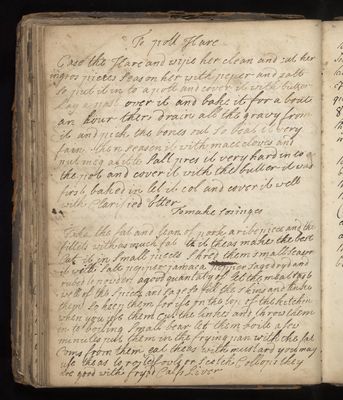 To pott Hare
Case the Hare and wipe her clean and cut her
in gros pieces Season her with peper and salt
So put it in to a pott and cover it with butter
lay a past over it and bake it for a boute
an hour then drain all the gravy from
it and pick the bones out So beat it very
fain then season it with mace cloves and
nutmeg a gette pall pres it very hard in to a
the pot and cover it with the butter it was
first baked in let it col and cover it well
with Clarified Utter
To make
Take the fat and lean of pork a ribe pice and the
filled with as much fat it theas makes the best
Cut it in small pieces Shred them small season
it with salt peper jamaca pepper Sage dryd and
rubed to powder a good quantaty of let the meat tast
well of the Spices and Sage the skins and
them So keep them for use in the top of the kitchin
when you use them cut the linkes and throw them
in to boiling Small bear let them boile a few
minutes put them in the frying pan with the fat
Coms from them eat theas with mustard you may
use theas to rosted foule or Scotch Collops they
are good with fryed Calfs Liver